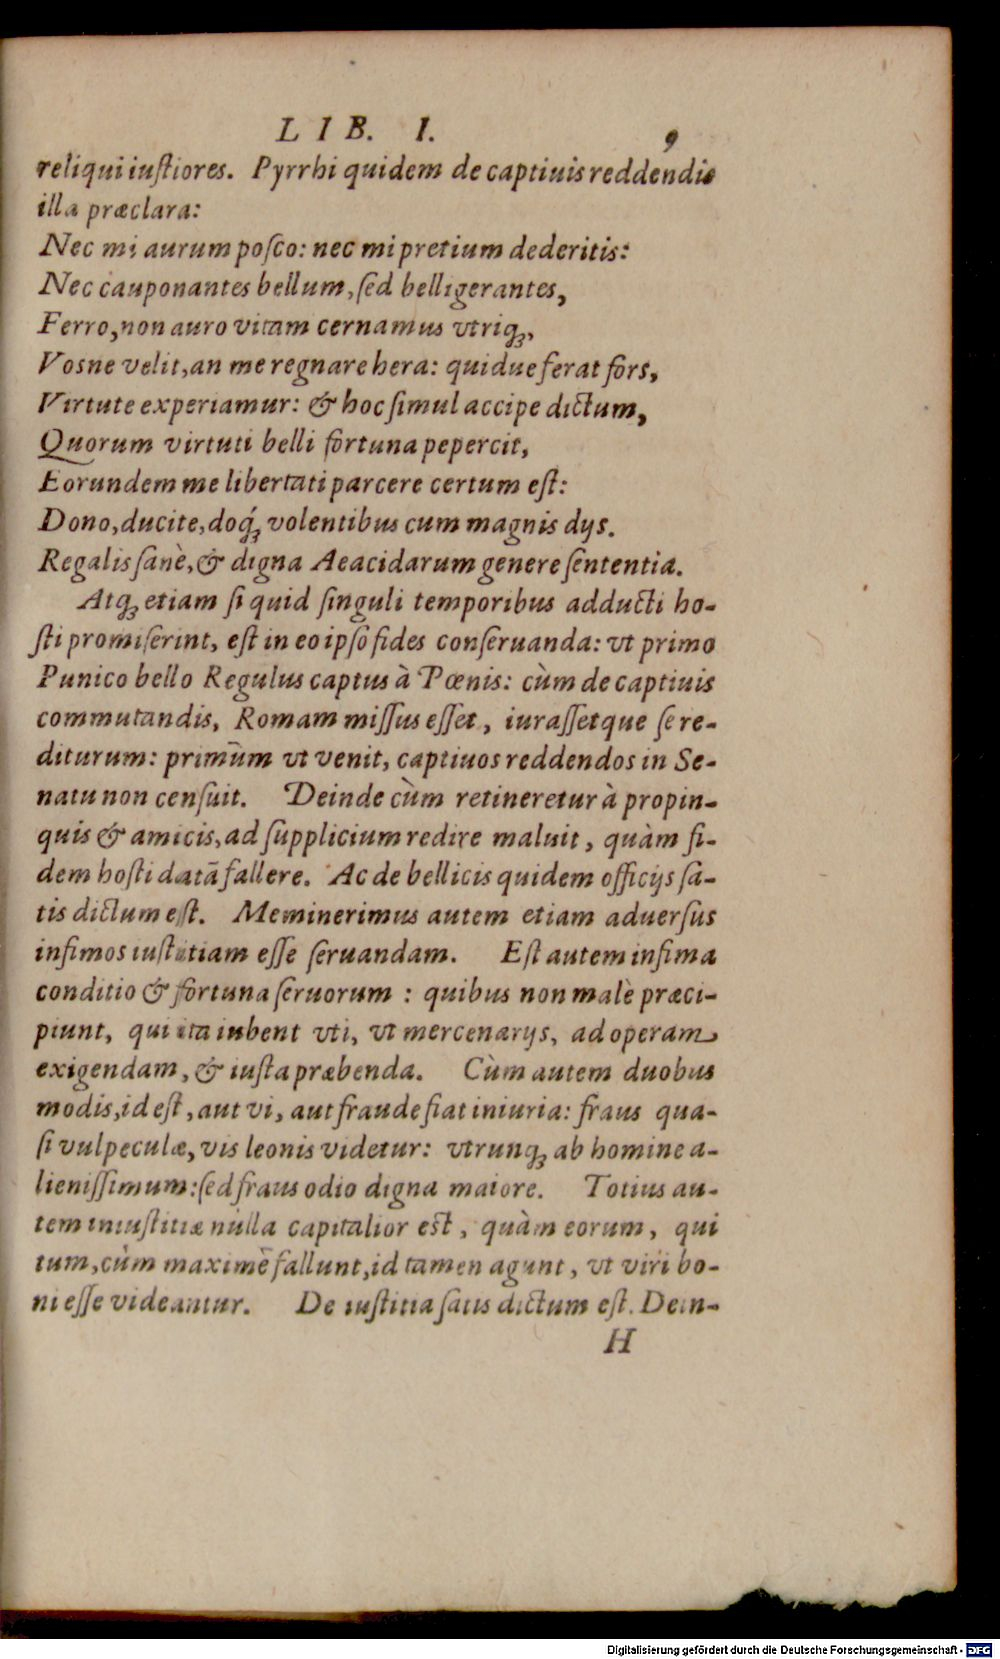 LIB. I. 9
reliqui iuſtiores. Pyrrhi quidem de captiuis reddendis
illa præclara:
Nec mi aurum poſco: nec mi pretium dederitis:
Nec cauponantes bellum, ſed belligerantes,
Ferro, non auro vitam cernamus vtriqꝫ,
Vosne velit, an me regnare hera: quidue ferat fors,
Virtute experiamur: & hoc ſimul accipe dictum,
Quorum virtuti belli fortuna pepercit,
Eorundem me libertati parcere certum eſt:
Dono, ducite, doq́ꝫ volentibus cum magnis dijs.
Regalis ſanè, & digna Aeacidarum genere ſententia.
Atqꝫ etiam ſi quid ſinguli temporibus adducti ho-
ſti promiſerint, eſt in eo ipſo fides conſeruanda: vt primo
Punico bello Regulus captus à Pœnis: cùm de captiuis
commutandis, Romam miſſus eſſet, iuraſſetque ſe re-
diturum: primùm vt venit, captiuos reddendos in Se-
natu non cenſuit. Deinde cùm retineretur à propin-
quis & amicis, ad ſupplicium redire maluit, quàm fi-
dem hoſti datā fallere. Ac de bellicis quidem officijs ſa-
tis dictum eſt. Meminerimus autem etiam aduerſus
infimos iuſtitiam eſſe ſeruandam. Eſt autem infima
conditio & fortuna ſeruorum : quibus non malè præci-
piunt, qui ita iubent vti, vt mercenarijs, ad operam
exigendam, & iuſta præbenda. Cùm autem duobus
modis, id eſt, aut vi, aut fraude fiat iniuria: fraus qua-
ſi vulpeculæ, vis leonis videtur: vtrunqꝫ ab homine a-
lieniſſimum: ſed fraus odio digna maiore. Totius au-
tem iniuſtitiæ nulla capitalior eſt, quàm eorum, qui
tum, cùm maximè fallunt, id tamen agunt, vt viri bo-
ni eſſe videantur. De iuſtitia ſatis dictum eſt. Dein-
H
Digitalisierung gefördert durch die Deutsche Forschungsgemeinschaft - DFG